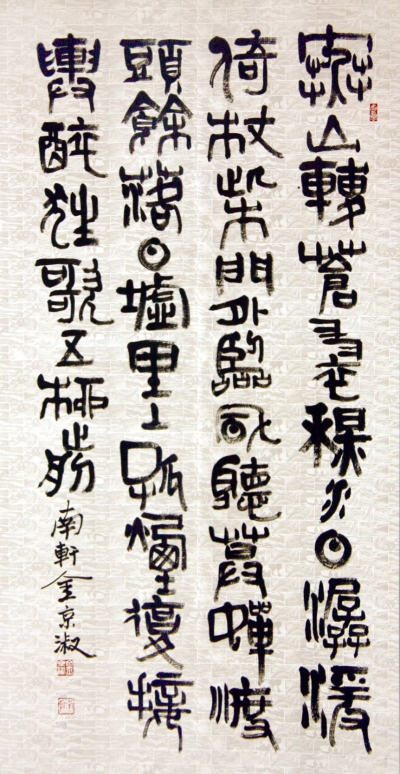 寒山轉蒼翠秋水日潺湲
倚杖柴門外臨風聽暮蟬渡
頭餘落日墟里上孤煙復接
輿醉狂歌五柳前
南軒金京淑